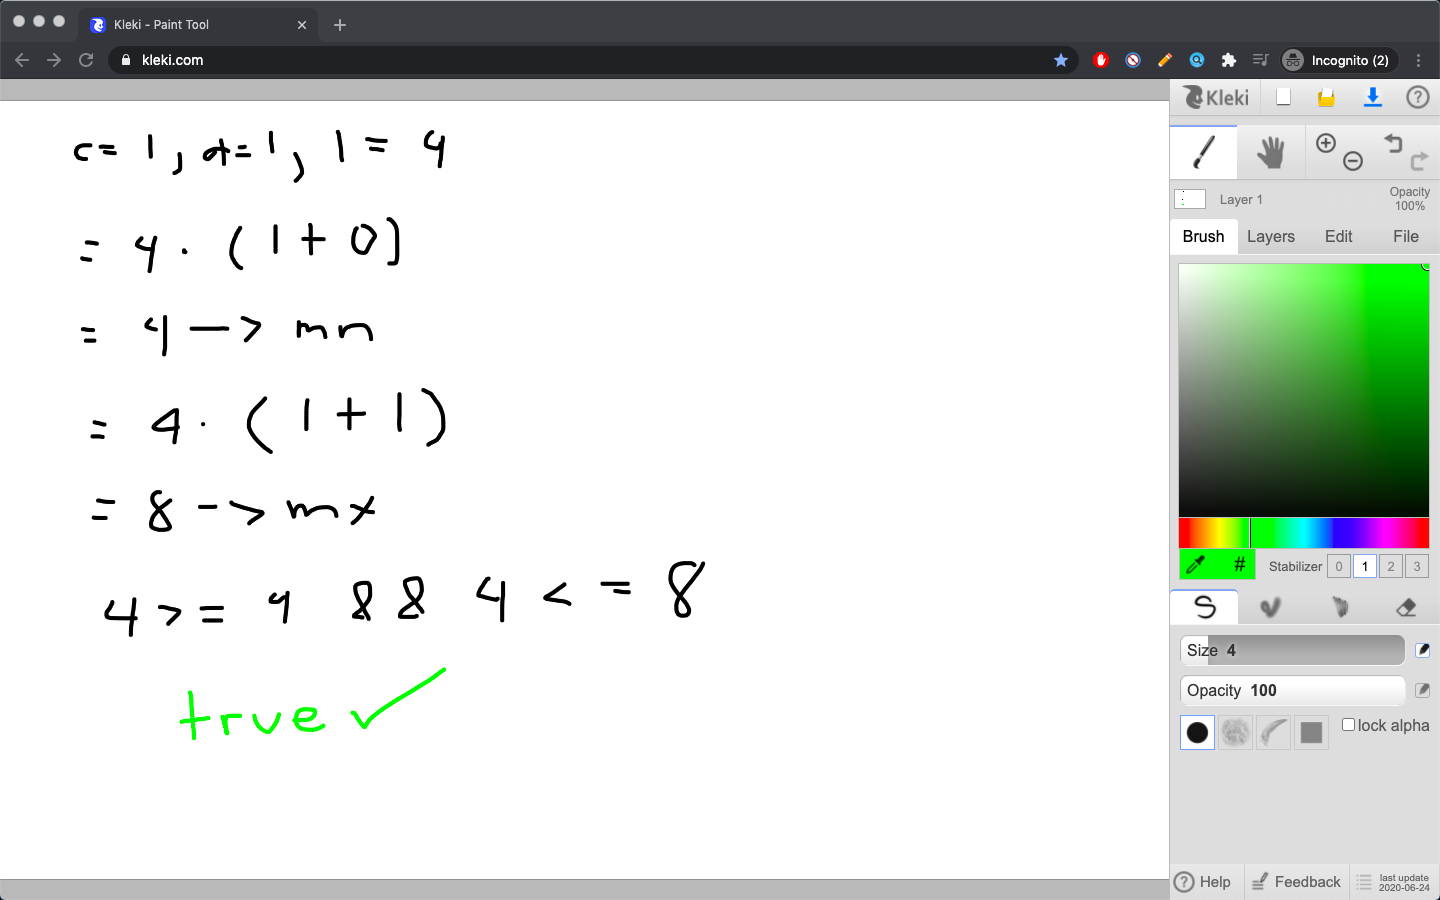 Kleki - Paint Tool
kleki.com
Incognito (2)
c = 1, d = 1, l = 4
= 4 · (1 + 0)
= 4 -> mn
= 4 · (1 + 1)
= 8 -> mx
4 >= 4 && 4 <= 8
true ✓
Kleki
Layer 1
Opacity
100%
Brush
Layers
Edit
File
#
Stabilizer
0
1
2
3
Size 4
Opacity 100
lock alpha
Help
Feedback
last update
2020-06-24